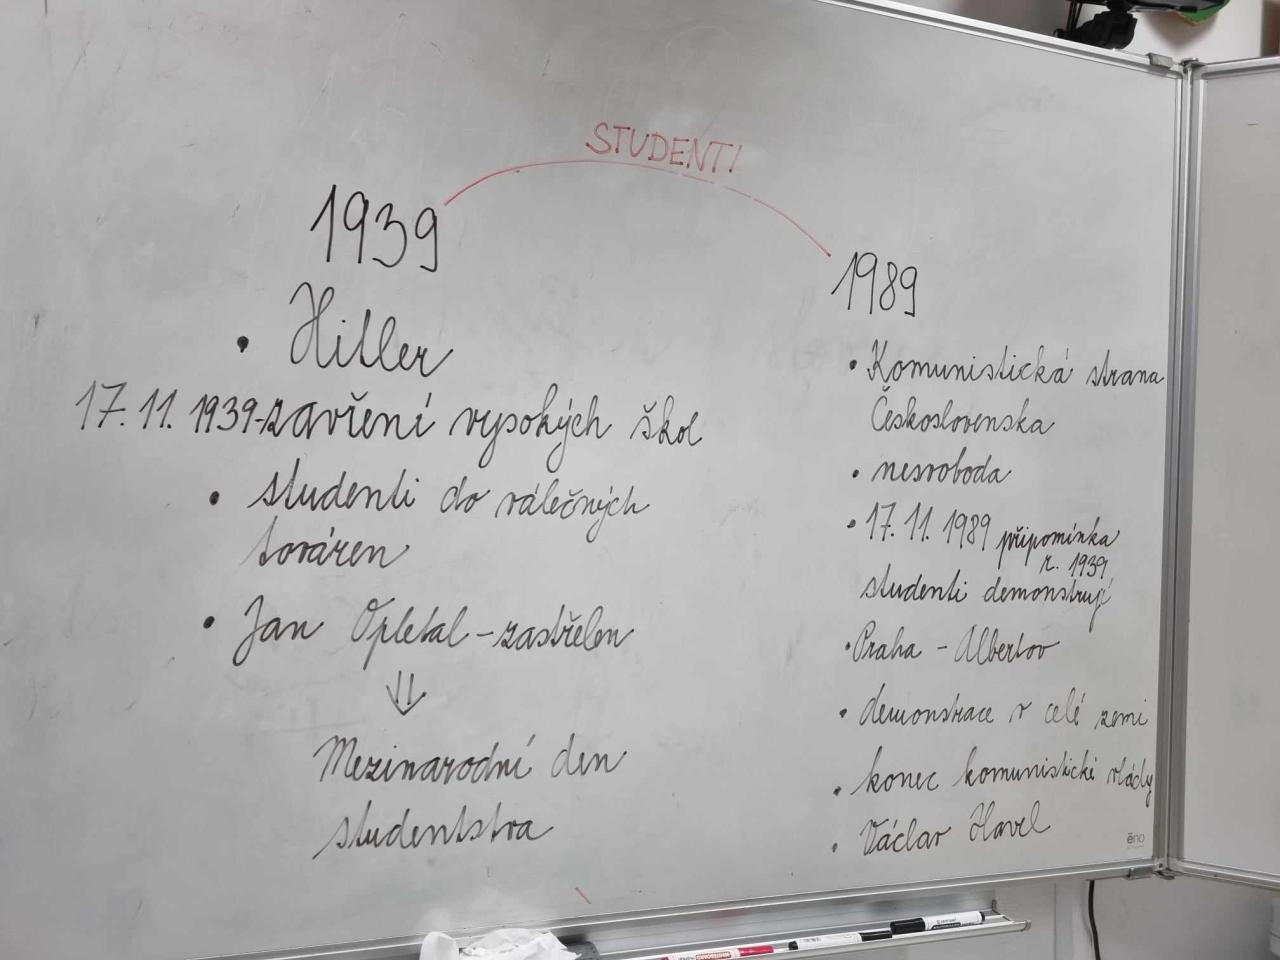 STUDENTI
1939
• Hitler
17. 11. 1939-zavření vysokých škol
• studenti do válečných
továren
• Jan Opletal - zastřelen
⇓
Mezinarodní den
studentstva
1989
• Komunistická strana
Československa
• nesvoboda
• 17. 11. 1989 připomínka
r. 1939
studenti demonstrují
• Praha - Albertov
• demonstrace v celé zemi
• konec komunistické vlády
• Václav Havel
ēno